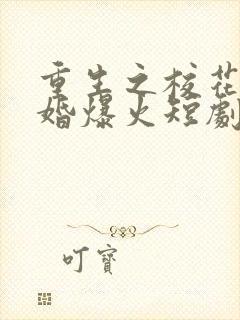 重生之校花
婚爆火短劇
叮寶